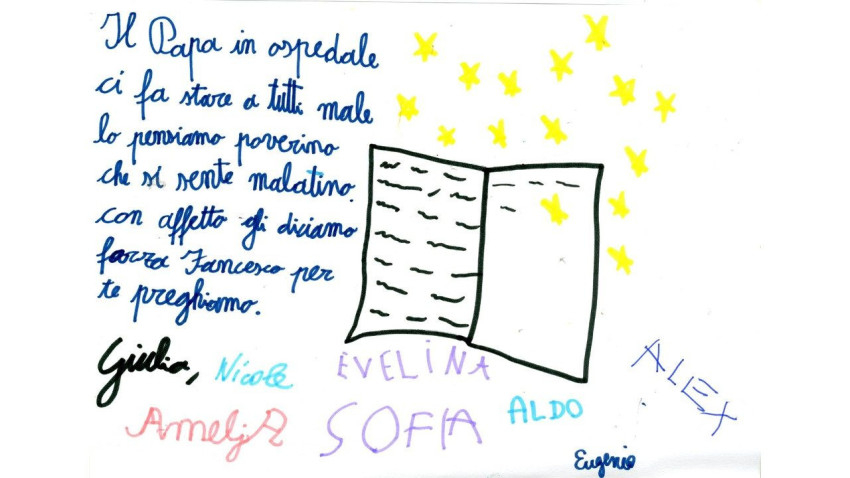 Il Papa in ospedale
ci fa stare a tutti male
lo pensiamo poverino
che si sente malatino.
con affetto gli diciamo
forza Fancesco per
te preghiamo.
Giulia, Nicole EVELINA
ALEX
AmeljA SOFIA ALDO
Eugenio